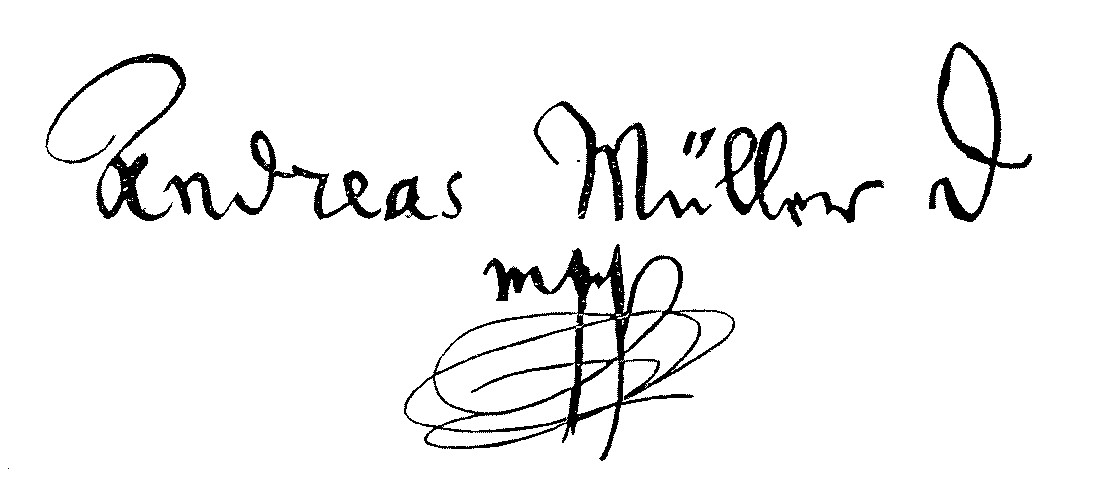 Andreas Müller D
mpp